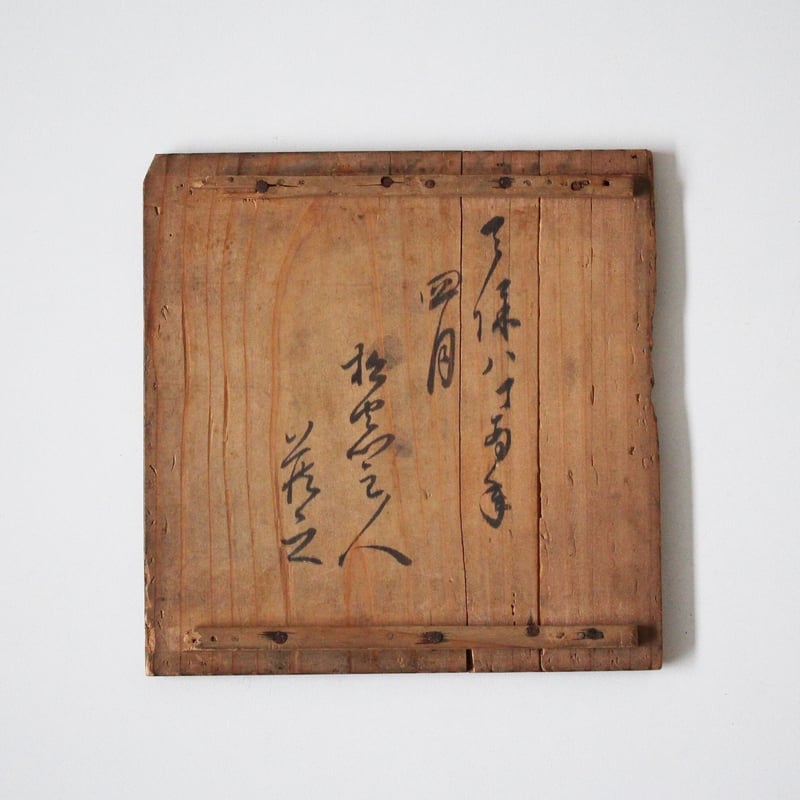 天保八丁酉年
四月
松窓主人
蔵之